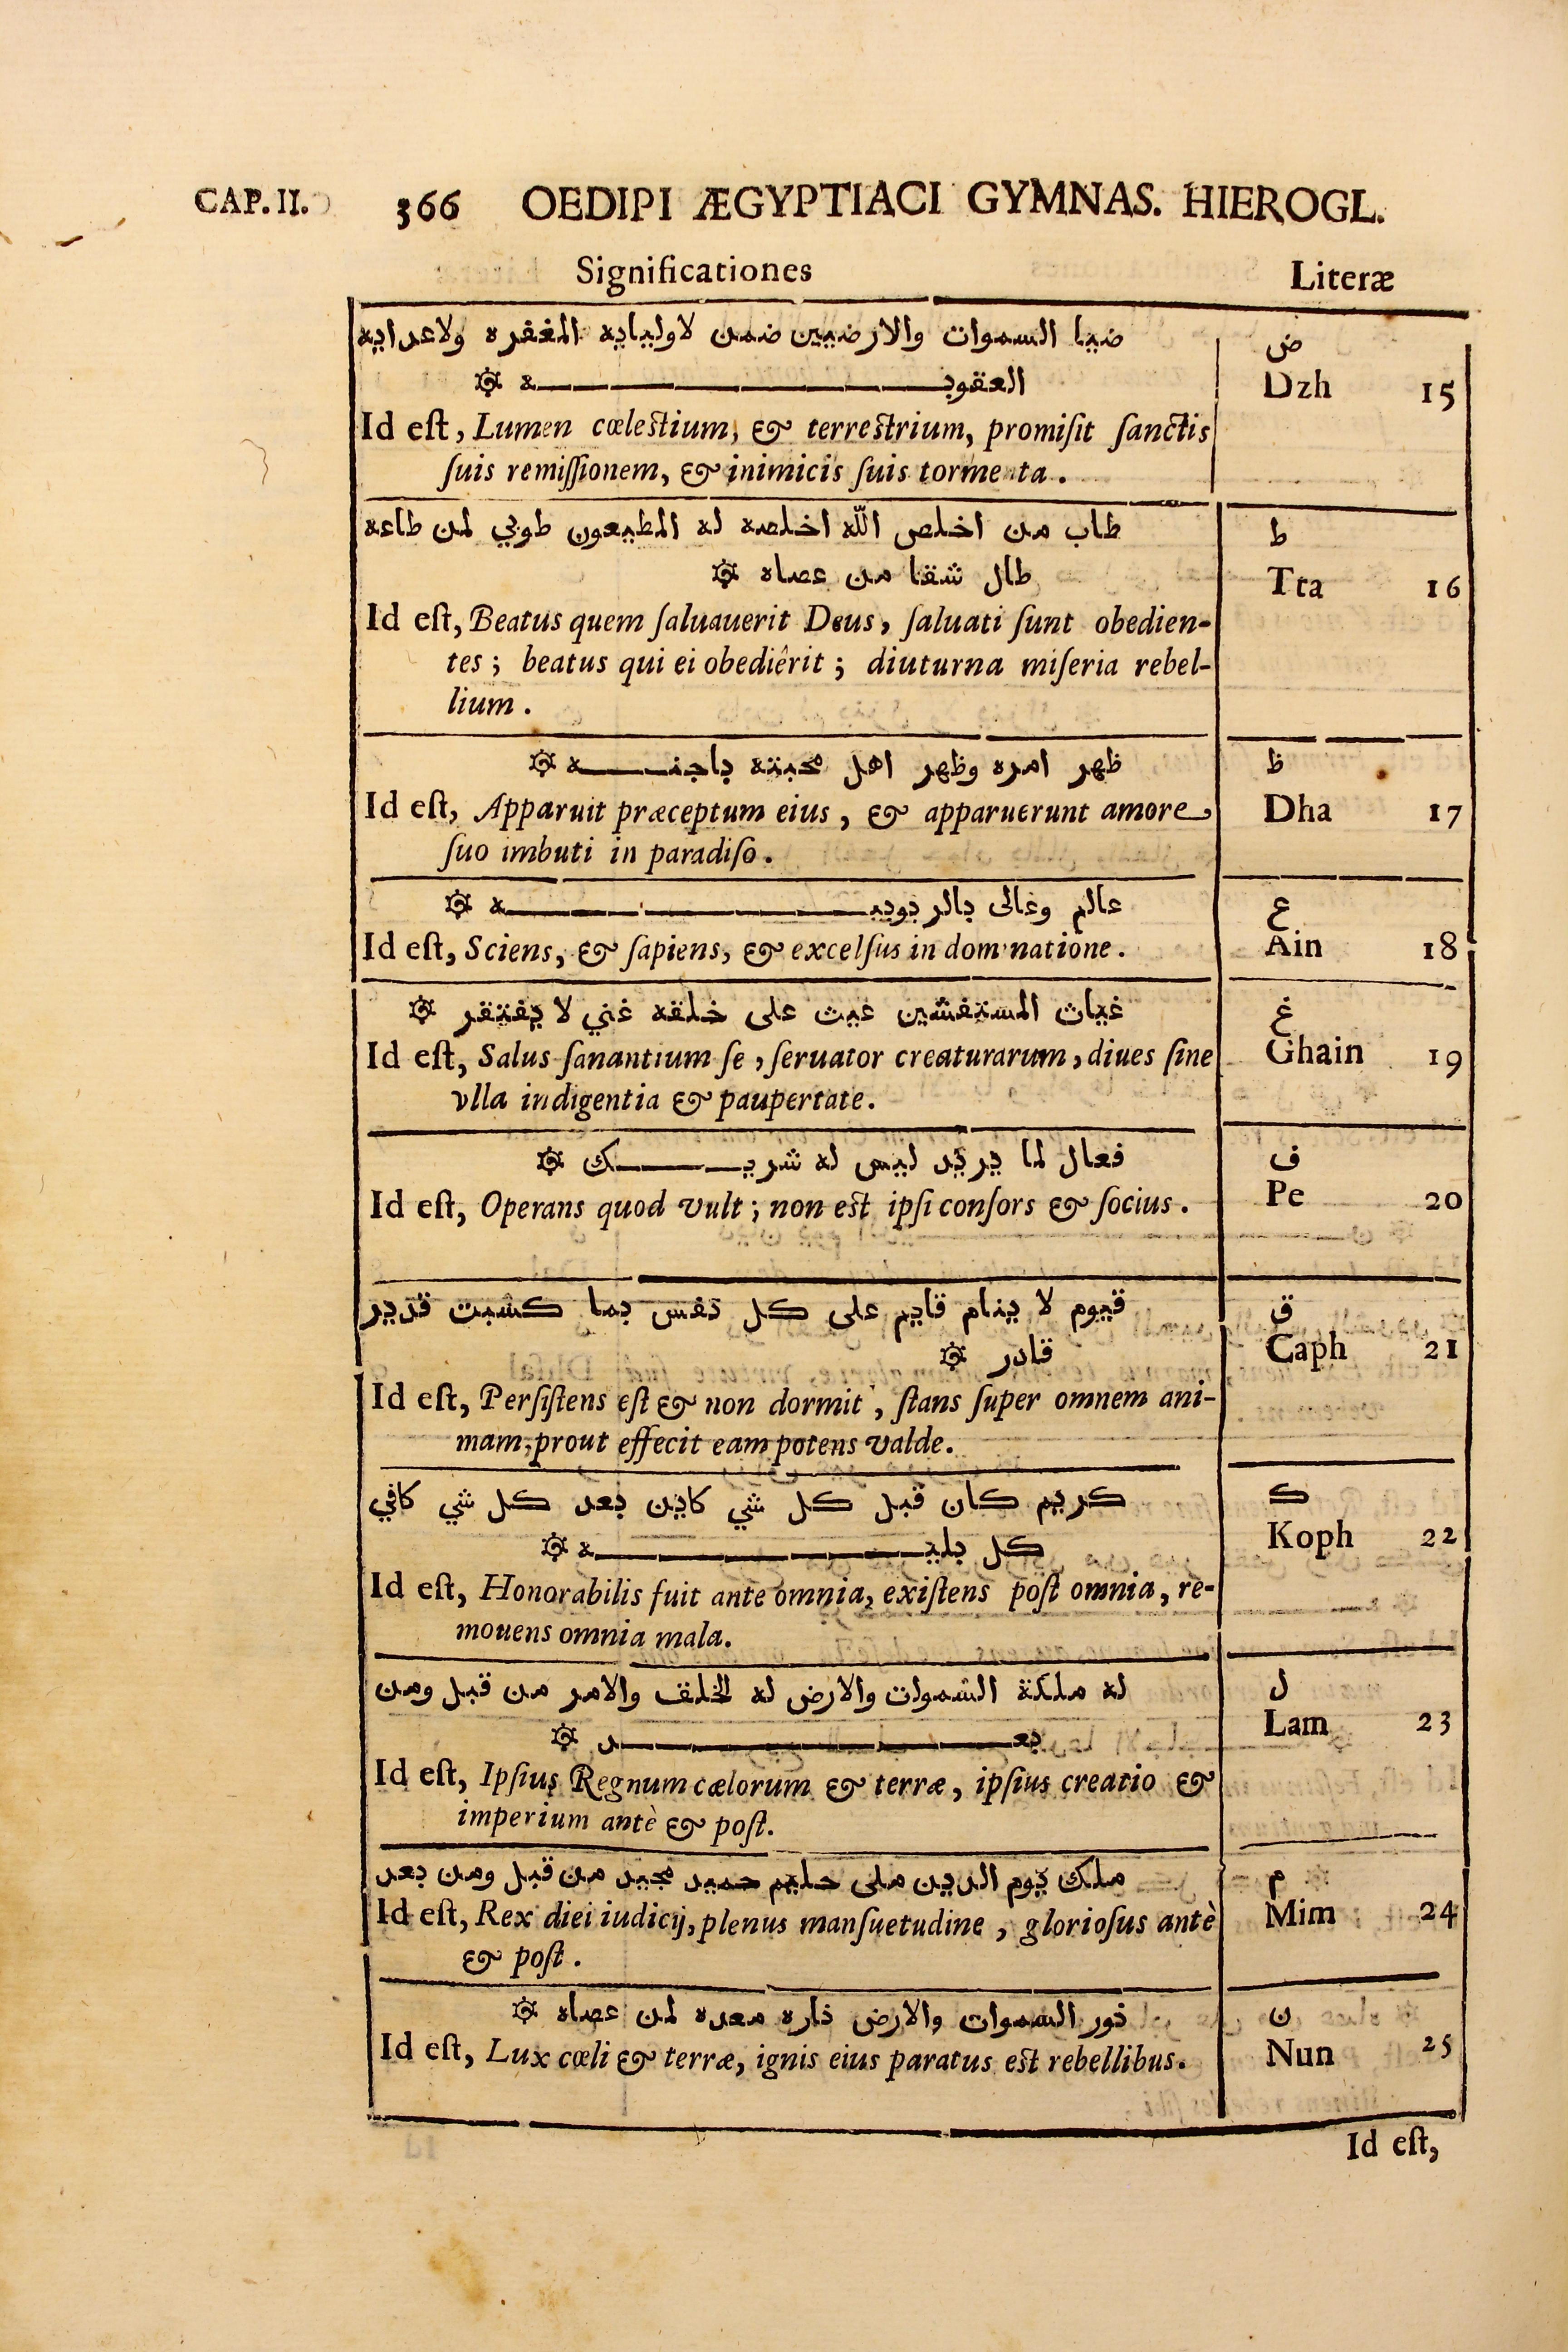 CAP. II. 366 OEDIPI ÆGYPTIACI GYMNAS. HIEROGL.
Significationes Literæ
ضيا السموات والارضيين ضمن لاوليايه المغفره ولاعدايه
العقوبه
ض
Dzh 15
Id eſt, Lumen cœleſtium, & terreſtrium, promiſit ſanctis
ſuis remiſſionem, & inimicis ſuis tormenta.
طاب من اخلص الله اخلصه له المطيعون طوبي لمن طاعه
طال شقا من عصاه
ط
Tta 16
Id eſt, Beatus quem ſaluauerit Deus, ſaluati ſunt obedien-
tes; beatus qui ei obediêrit; diuturna miſeria rebel-
lium.
ظهر امره وظهر اهل محبته باجنه
ظ
Dha 17
Id eſt, Apparuit præceptum eius, & apparuerunt amore
ſuo imbuti in paradiſo.
عالم وعالى بالربوبيه
ع
Ain 18
Id eſt, Sciens, & ſapiens, & excelſus in dominatione.
غياث المستفشين غيث على خلقه غني لا يفتقر
غ
Ghain 19
Id eſt, Salus ſanantium ſe, ſeruator creaturarum, diues ſine
vlla indigentia & paupertate.
فعال لما يريد ليس له شريك
ف
Pe 20
Id eſt, Operans quod vult; non eſt ipſi conſors & ſocius.
قيوم لا ينام قايم على كل نفس بما كشبت قدير
قادر
ق
Caph 21
Id eſt, Perſiſtens eſt & non dormit, ſtans ſuper omnem ani-
mam, prout effecit eam potens valde.
كريم كان قبل كل شي كاين بعد كل شي كافي
كل بليه
ك
Koph 22
Id eſt, Honorabilis fuit ante omnia, exiſtens poſt omnia, re-
mouens omnia mala.
له ملكة الشموات والارض له الخلق والامر من قبل ومن
بعد
ل
Lam 23
Id eſt, Ipſius Regnum cælorum & terræ, ipſius creatio &
imperium antè & poſt.
ملك يوم الدين ملى حليم حميد مجيد من قبل ومن بعد
م
Mim 24
Id eſt, Rex diei iudicij, plenus manſuetudine, glorioſus antè
& poſt.
نور السموات والارض ناره معده لمن عصاه
ن
Nun 25
Id eſt, Lux cœli & terræ, ignis eius paratus eſt rebellibus.
Id eſt,